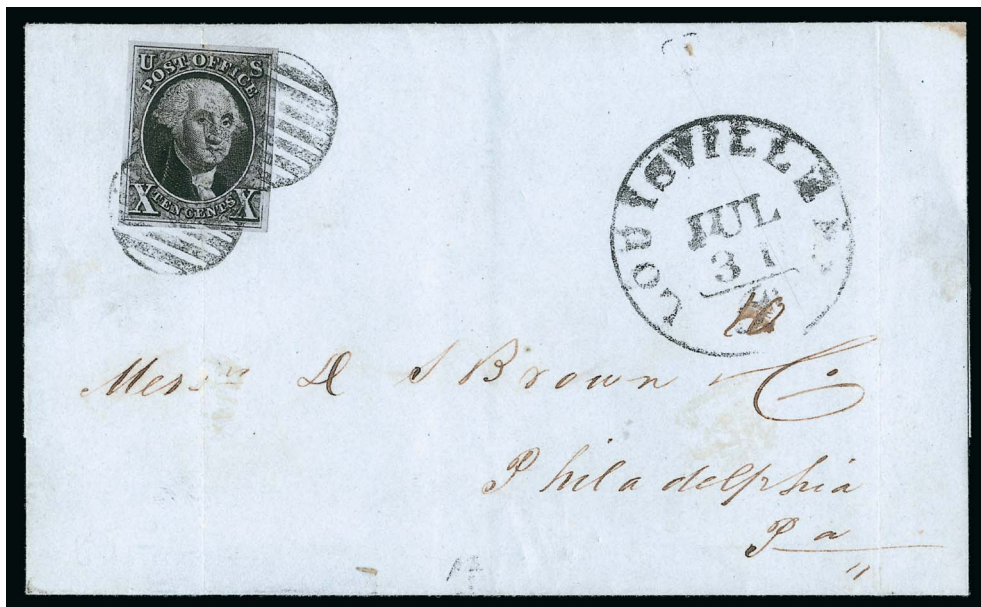 U S
POST OFFICE
X TEN CENTS X
LOUISVILLE Ky.
JUL
31
10
Messrs D S Brown & Co.
Philadelphia
Pa